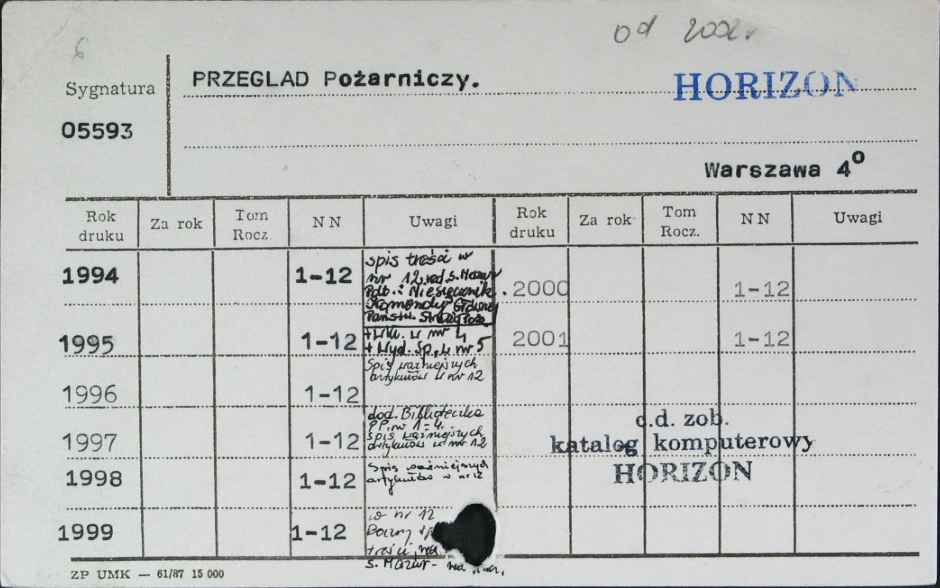 od 2002 r
6
Sygnatura
PRZEGLAD Pożarniczy.
HORIZON
05593
Warszawa 4º
Rok druku Za rok Tom Rocz. NN Uwagi Rok druku Za rok Tom Rocz. NN Uwagi
1994 1-12 spis treści w
nr 12. red. S. Mazur
Pdt.: Miesięcznik
Komendy Głównej
Państw. Straży Poż.
2000 1-12
1995 1-12 + Wkł. w nr 4
+ Wyd. Sp. w nr 5
2001 1-12
Spis ważniejszych
artykułów w nr 12
1996 1-12
dod. Biblioteczka
PP. nr 1-4.
1997 1-12 spis ważniejszych
artykułów w nr 12
c.d. zob.
katalog komputerowy
HORIZON
1998 1-12 Spis ważniejszych
artykułów w nr 12
1999 1-12 w nr 12
treści
S. Mazur-
ZP UMK — 61/87 15 000